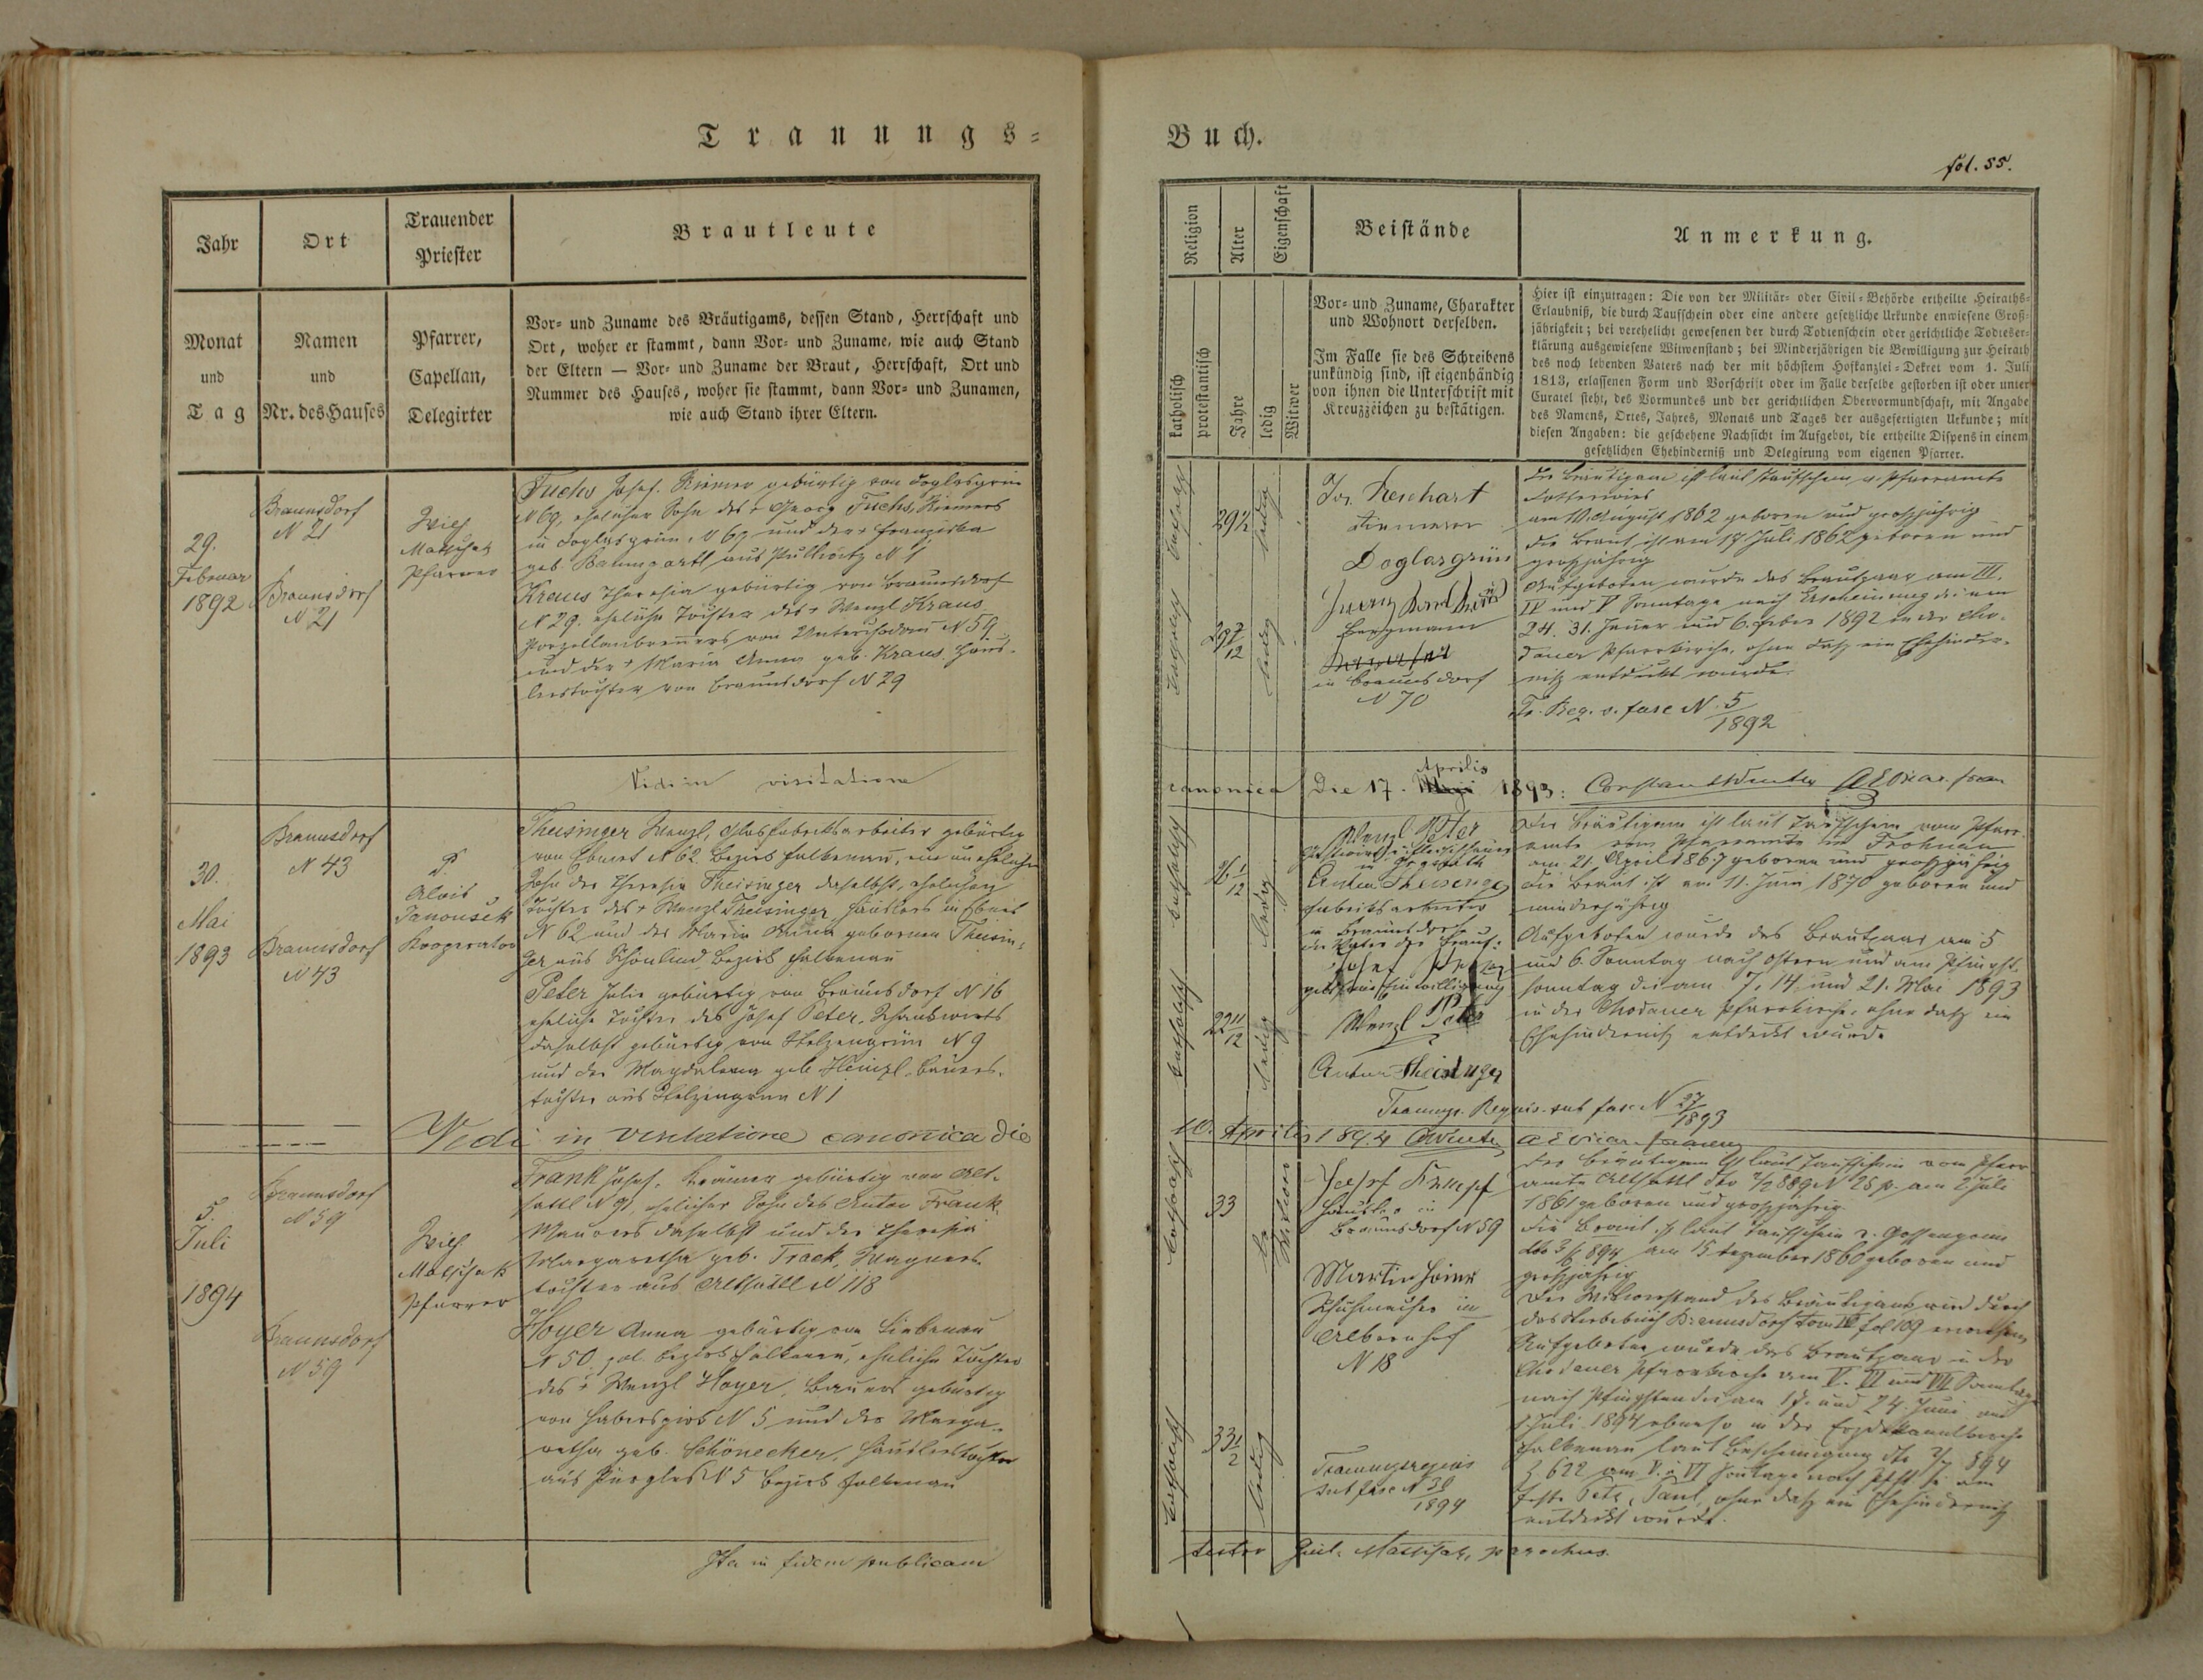 Trauungs=
Buch.
fol. 55.
Jahr
Ort
Trauender
Priester
Brautleute
Monat
und
Tag
Namen
und
Nr. des Hauses
Pfarrer,
Capellan,
Delegirter
Vor= und Zuname des Bräutigams, dessen Stand, Herrschaft und
Ort, woher er stammt, dann Vor= und Zuname, wie auch Stand
der Eltern — Vor= und Zuname der Braut, Herrschaft, Ort und
Nummer des Hauses, woher sie stammt, dann Vor= und Zunamen,
wie auch Stand ihrer Eltern.
29.
Februar
1892
Braunsdorf
N 21
Braunsdorf
N 21
Wilh
Matschak
Pfarrer
Fuchs Josef, Riemer gebürtig von Doglasgrün
N 69, ehelicher Sohn des + Georg Fuchs, Riemers
in Doglasgrün N 69 und der + Franziska
geb. Baumgartl aus Pullwitz N 1
Kraus Theresia gebürtig von Braunsdorf
N 29. eheliche Tochter des + Wenzl Kraus
Porzellanbrenners von Unterchodau N 59
und der + Maria Anna geb. Kraus, Häus=
lerstochter von Braunsdorf N 29
Vidi in visitatione
30.
Mai
1893
Braunsdorf
N 43
Braunsdorf
N 43
P.
Alois
Janoušek
Kooperator
Theisinger Wenzl, Glasfabriksarbeiter gebürtig
von Ebmet N 62 Bezirk Falkenau, ein unehelicher
Sohn der Theresia Theisinger daselbst, ehelichen
Tochter des + Wenzl Theisinger, Häuslers in Ebmet
N 62 und der Maria Anna gebornen Theisin=
ger aus Schönlind, Bezirk Falkenau
Peter Julie gebürtig von Braunsdorf N 16
eheliche Tochter des Josef Peter, Schankwirts
daselbst gebürtig von Stelzengrün N 9
und der Magdalena geb. Heinzl, Bauers=
tochter aus Stelzengrün N 1
Vidi in visitatione canonica die
5.
Juli
1894
Braunsdorf
N 59
Braunsdorf
N 59
Wilh
Matschak
Pfarrer
Frank Josef, Krämer gebürtig von Alt=
sattl N 91, ehelicher Sohn des Anton Frank
Maurers daselbst und der Theresia
Margaretha geb. Track, Wagners=
tochter aus Altsattl N 118
Hoyer Anna gebürtig von Liebenau
N 50, pol. Bezirk Falkenau, eheliche Tochter
des + Wenzl Hoyer, Bauers gebürtig
von Haberspirk N 5 und der Marga=
retha geb. Schönecker, Häuslerstochter
aus Pürgles N 5 Bezirk Falkenau
Ita in fidem publicam
Religion
Alter
Eigenschaft
Beistände
Anmerkung.
katholisch
protestantisch
Jahre
ledig
Witwer
Vor= und Zuname, Charakter
und Wohnort derselben.
Im Falle sie des Schreibens
unkündig sind, ist eigenhändig
von ihnen die Unterschrift mit
Kreuzzeichen zu bestätigen.
Hier ist einzutragen: Die von der Militär= oder Civil=Behörde ertheilte Heiraths=
Erlaubniß, die durch Taufschein oder eine andere gesetzliche Urkunde erwiesene Groß=
jährigkeit; bei verehelicht gewesenen der durch Todtenschein oder gerichtliche Todteser=
klärung ausgewiesene Witwenstand; bei Minderjährigen die Bewilligung zur Heirath
des noch lebenden Vaters nach der mit höchstem Hofkanzlei=Dekret vom 1. Juli
1813, erlassenen Form und Vorschrift oder im Falle derselbe gestorben ist oder unter
Curatel steht, des Vormundes und der gerichtlichen Obervormundschaft, mit Angabe
des Namens, Ortes, Jahres, Monats und Tages der ausgefertigten Urkunde; mit
diesen Angaben: die geschehene Nachsicht im Aufgebot, die ertheilte Dispens in einem
gesetzlichen Ehehinderniß und Delegirung vom eigenen Pfarrer.
katholisch
29 1/2
ledig
katholisch
29 7/12
ledig
Jos. Reichart
Doglasgrün
Bergmann
in Braunsdorf
N 70
Der Bräutigam ist laut Taufschein v. Pfarramte
am 10. August 1862 geboren und großjährig
Die Braut ist am 17. Juli 1862 geboren und
großjährig
Aufgeboten wurde das Brautpaar am III.
IV und V Sonntage nach Erscheinung d. i. am
24. 31. Jänner und 6. Feber 1892 in der Cho=
dauer Pfarrkirche, ohne daß ein Ehehinder=
niß entdeckt wurde.
Tr. Req. s. fasc N. 5/1892
canonica die 17. Aprilis 1893:
katholisch
1/12
ledig
katholisch
22 11/12
ledig
Wenzl Peter
Anton Theisinger
Fabriksarbeiter
in Braunsdorf
der Vater der Braut:
Josef Peter
gibt seine Einwilligung
Wenzl Peter
Anton Theisinger
Der Bräutigam ist laut Taufschein vom Pfarr=
amte vom Pfarramte in Frohnau
am 21. April 1867 geboren und großjährig
Die Braut ist am 11. Juni 1870 geboren und
minderjährig
Aufgeboten wurde das Brautpaar am 5
und 6. Sonntag nach Ostern und am Pfingst=
sonntag d. i. am 7, 14. und 21. Mai 1893
in der Chodauer Pfarrkirche, ohne daß ein
Ehehinderniß entdeckt wurde
Trauungs. Requis. sub fasc N 27/1893
10. Aprilis 1894
katholisch
33
Witwer
katholisch
33 1/2
ledig
Josef Krumpf
Häusler in
Braunsdorf N 59
Martin Heink
Schuhmacher in
Albernhof
N 18
Trauungsrequis
sub fasc N 38/1894
Der Bräutigam ist laut Taufschein vom Pfarr=
amte Altsattl am 2. Juli
1861 geboren und großjährig.
Die Braut ist laut Taufschein v. Gossengrün
am 15 Dezember 1860 geboren und
großjährig
Der Witwerstand des Bräutigams wird durch
das Sterbebuch Braunsdorf Tom III fol 109 erwiesen
Aufgeboten wurde das Brautpaar in der
Chodauer Pfarrkirche am V. VI und VII Sonntage
nach Pfingsten d. i. am 17. und 24. Juni und
1 Juli 1894 ebenso in der Erzdekanalkirche
Falkenau laut Bescheinigung dto 2/7 894
Z. 622 am V. u VI Sonntage nach Pfst. u am
Feste Peter, Paul, ohne daß ein Ehehinderniß
entdeckt wurde.
testor Guil. Matschak, parochus.